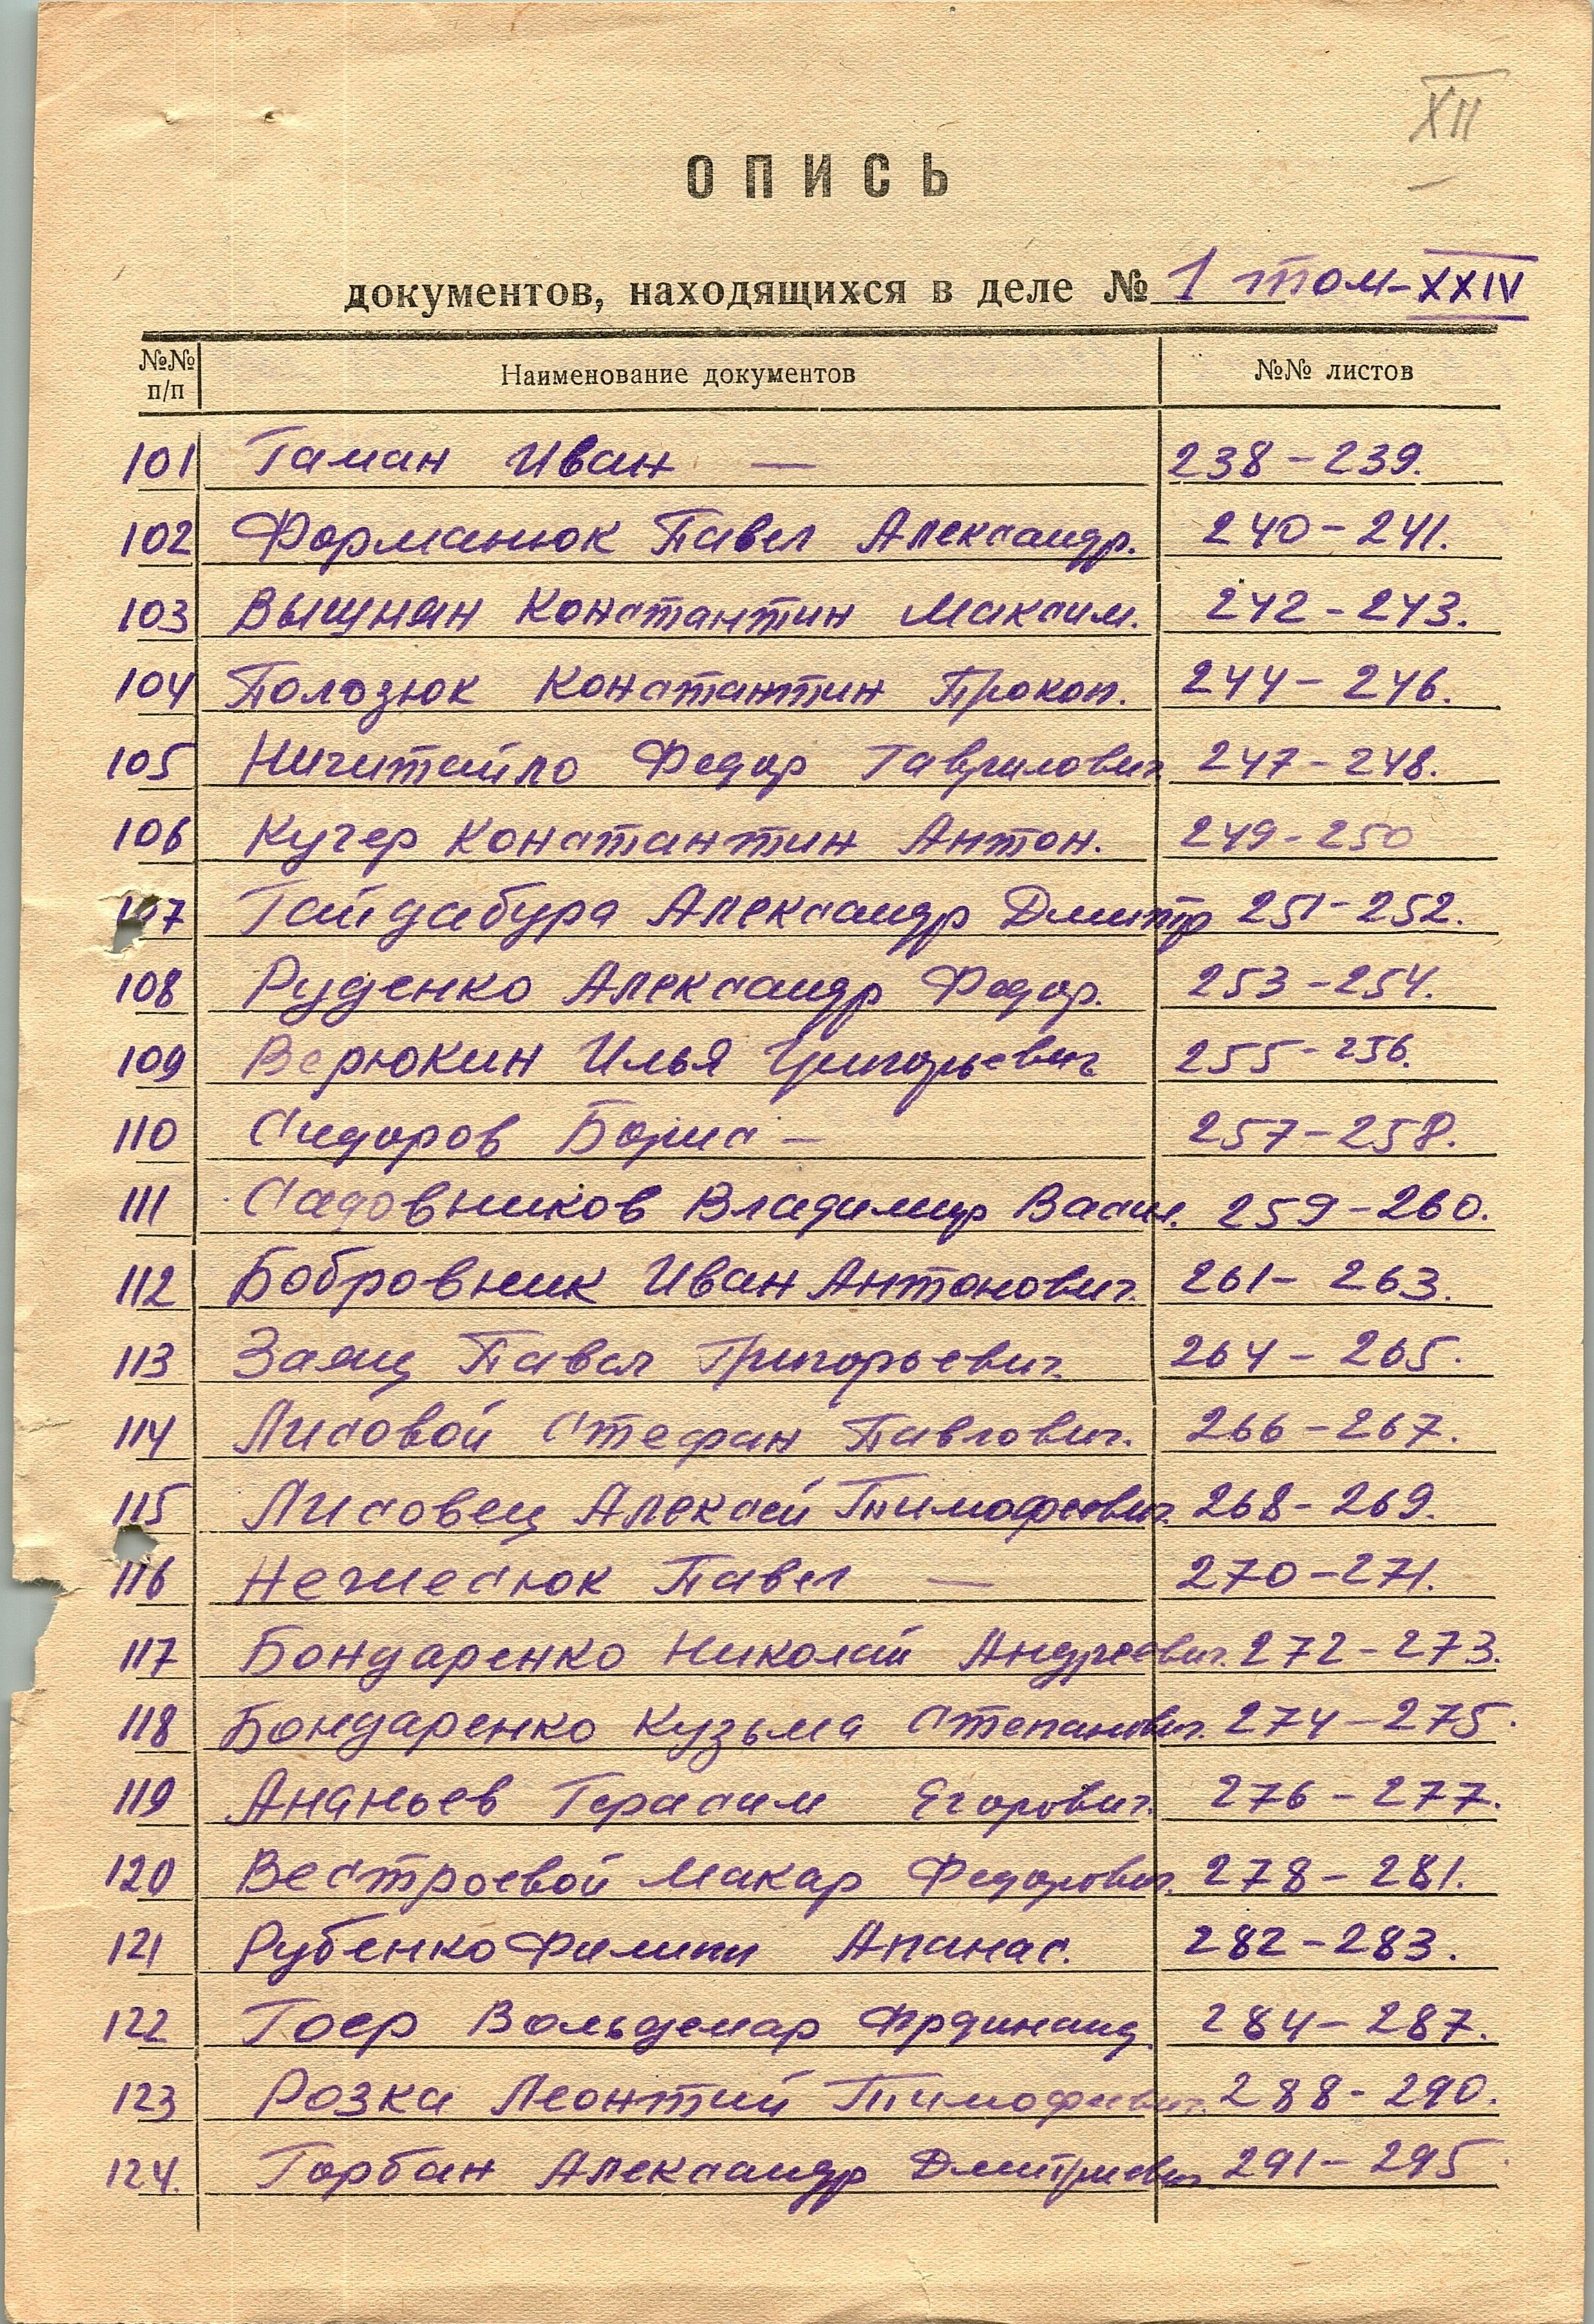 XII
ОПИСЬ
документов, находящихся в деле № 1 том-XXIV
№№ п/п Наименование документов №№ листов
101 Гаман Иван — 238-239.
102 Форманюк Павел Александр. 240-241.
103 Константин Максим. 242-243.
104 Полозюк Константин Прокоп. 244-246.
105 Ничитайло Федор Гаврилович 247-248.
106 Кучер Константин Антон. 249-250
107 Гайдабура Александр Дмитр 251-252.
108 Руденко Александр Федор. 253-254.
109 Верюкин Илья Григорьевич 255-256.
110 Сидоров Борис — 257-258.
111 Садовников Владимир Васил. 259-260.
112 Бобровник Иван Антонович. 261-263.
113 Заяц Павел Григорьевич. 264-265.
114 Лисовой Стефан Павлович. 266-267.
115 Лисовец Алексей Тимофеевич. 268-269.
116 Павел — 270-271.
117 Бондаренко Николай Андреевич. 272-273.
118 Бондаренко Кузьма Степанович. 274-275.
119 Ананьев Герасим Егорович. 276-277.
120 Вестроевой Макар Федорович. 278-281.
121 Рубенко Филипп Апанас. 282-283.
122 Гоер Вольдемар Фрдинанд. 284-287.
123 Розка Леонтий Тимофеевич. 288-290.
124. Горбан Александр Дмитриевич. 291-295.